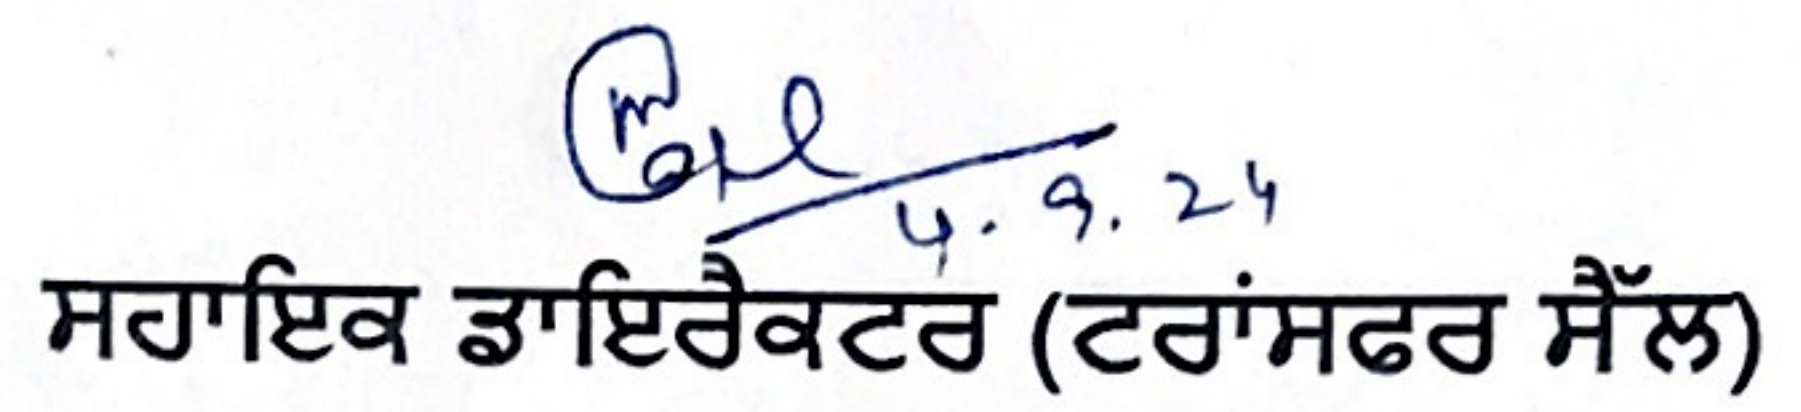 4.9.24
ਸਹਾਇਕ ਡਾਇਰੈਕਟਰ (ਟਰਾਂਸਫਰ ਸੈੱਲ)